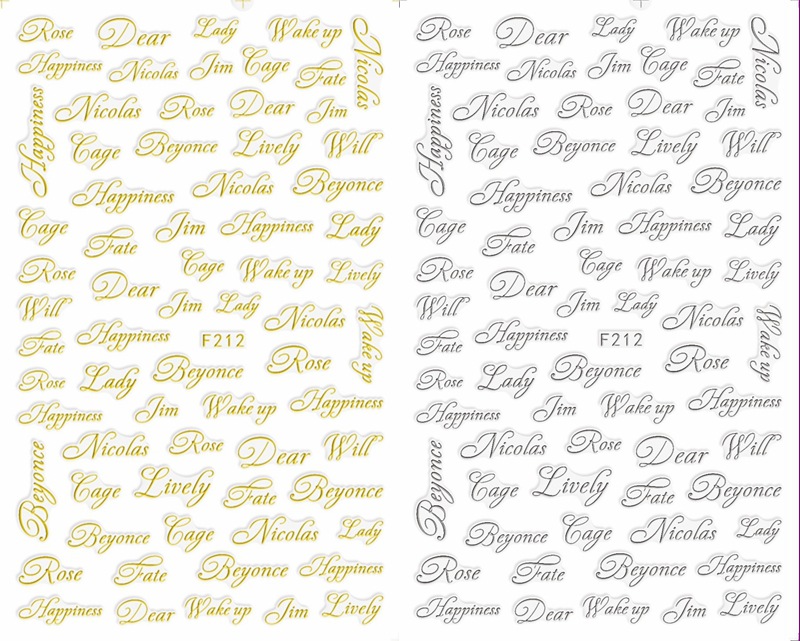 Rose Dear Lady Wake up Nicolas
Happiness Nicolas Jim Cage Fate
Happiness Nicolas Rose Dear Jim
Cage Beyonce Lively Will
Happiness Nicolas Beyonce
Cage Fate Jim Happiness Lady
Rose Dear Cage Wake up Lively
Will Jim Lady Nicolas Wake up
Fate Happiness F212
Rose Lady Beyonce Rose
Happiness Jim Wake up Happiness
Beyonce Nicolas Rose Dear Will
Cage Lively Fate Beyonce
Beyonce Cage Nicolas Lady
Rose Fate Beyonce Happiness
Happiness Dear Wake up Jim Lively
Rose Dear Lady Wake up Nicolas
Happiness Nicolas Jim Cage Fate
Happiness Nicolas Rose Dear Jim
Cage Beyonce Lively Will
Happiness Nicolas Beyonce
Cage Fate Jim Happiness Lady
Rose Dear Cage Wake up Lively
Will Jim Lady Nicolas Wake up
Fate Happiness F212
Rose Lady Beyonce Rose
Happiness Jim Wake up Happiness
Beyonce Nicolas Rose Dear Will
Cage Lively Fate Beyonce
Beyonce Cage Nicolas Lady
Rose Fate Beyonce Happiness
Happiness Dear Wake up Jim Lively